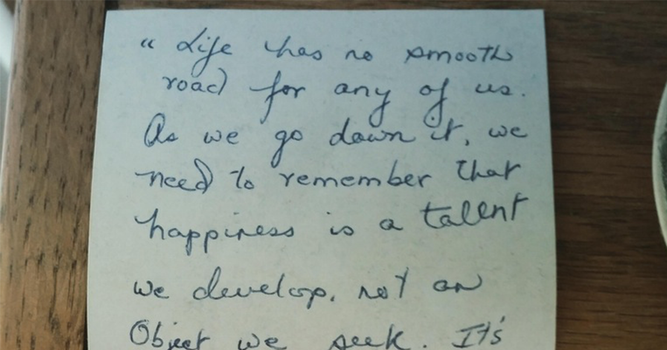 “ Life has no smooth
road for any of us.
As we go down it, we
need to remember that
happiness is a talent
we develop, not an
Object we seek. It's